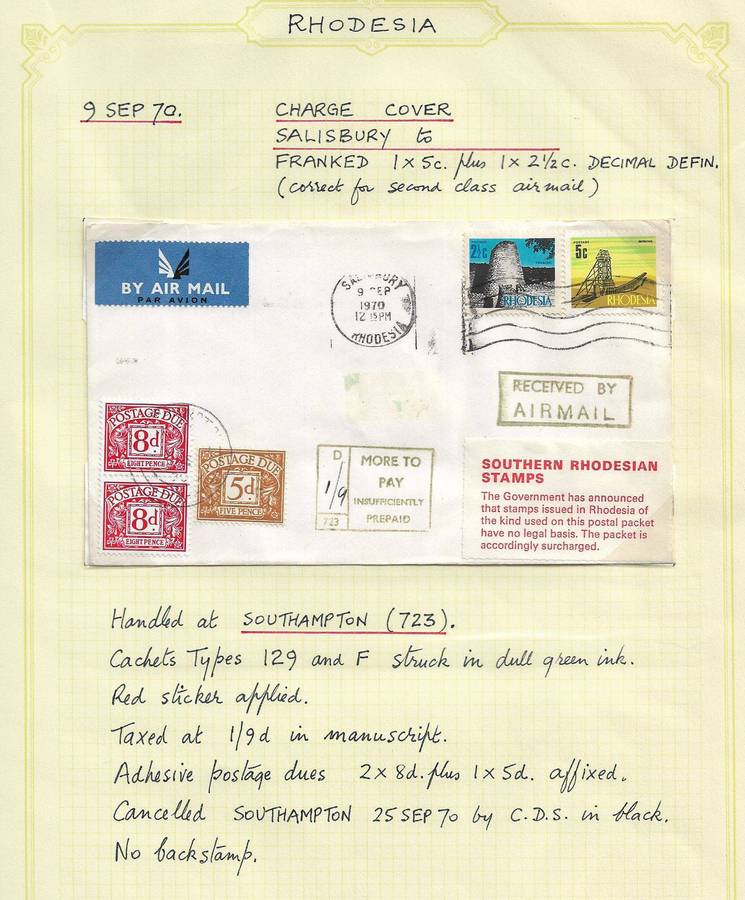 RHODESIA
9 SEP 70.
CHARGE COVER
SALISBURY to
FRANKED 1 x 5c. plus 1 x 2½c. DECIMAL DEFIN.
(correct for second class airmail)
BY AIR MAIL
PAR AVION
SALISBURY
9 SEP
1970
12 15 PM
RHODESIA
POSTAGE
2½c
RHODESIA
POSTAGE
5c
RHODESIA
RECEIVED BY
AIRMAIL
POSTAGE DUE
8d
EIGHT PENCE
POSTAGE DUE
8d
EIGHT PENCE
POSTAGE DUE
5d
FIVE PENCE
D
1/9
723
MORE TO
PAY
INSUFFICIENTLY
PREPAID
SOUTHERN RHODESIAN
STAMPS
The Government has announced
that stamps issued in Rhodesia of
the kind used on this postal packet
have no legal basis. The packet is
accordingly surcharged.
Handled at SOUTHAMPTON (723).
Cachets Types 129 and F struck in dull green ink.
Red sticker applied.
Taxed at 1/9d in manuscript.
Adhesive postage dues 2 x 8d. plus 1 x 5d. affixed.
Cancelled SOUTHAMPTON 25 SEP 70 by C.D.S. in black.
No backstamp.